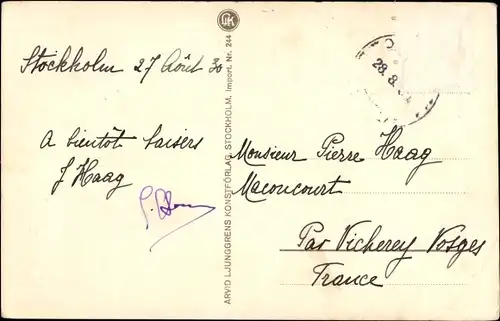 Stockholm 27 Août 30
A bientôt baisers
J Haag
ARVID LJUNGGRENS KONSTFÖRLAG, STOCKHOLM. Import. Nr. 244
28.8.
Monsieur Pierre Haag
Maconcourt
Par Vicherey Vosges
France